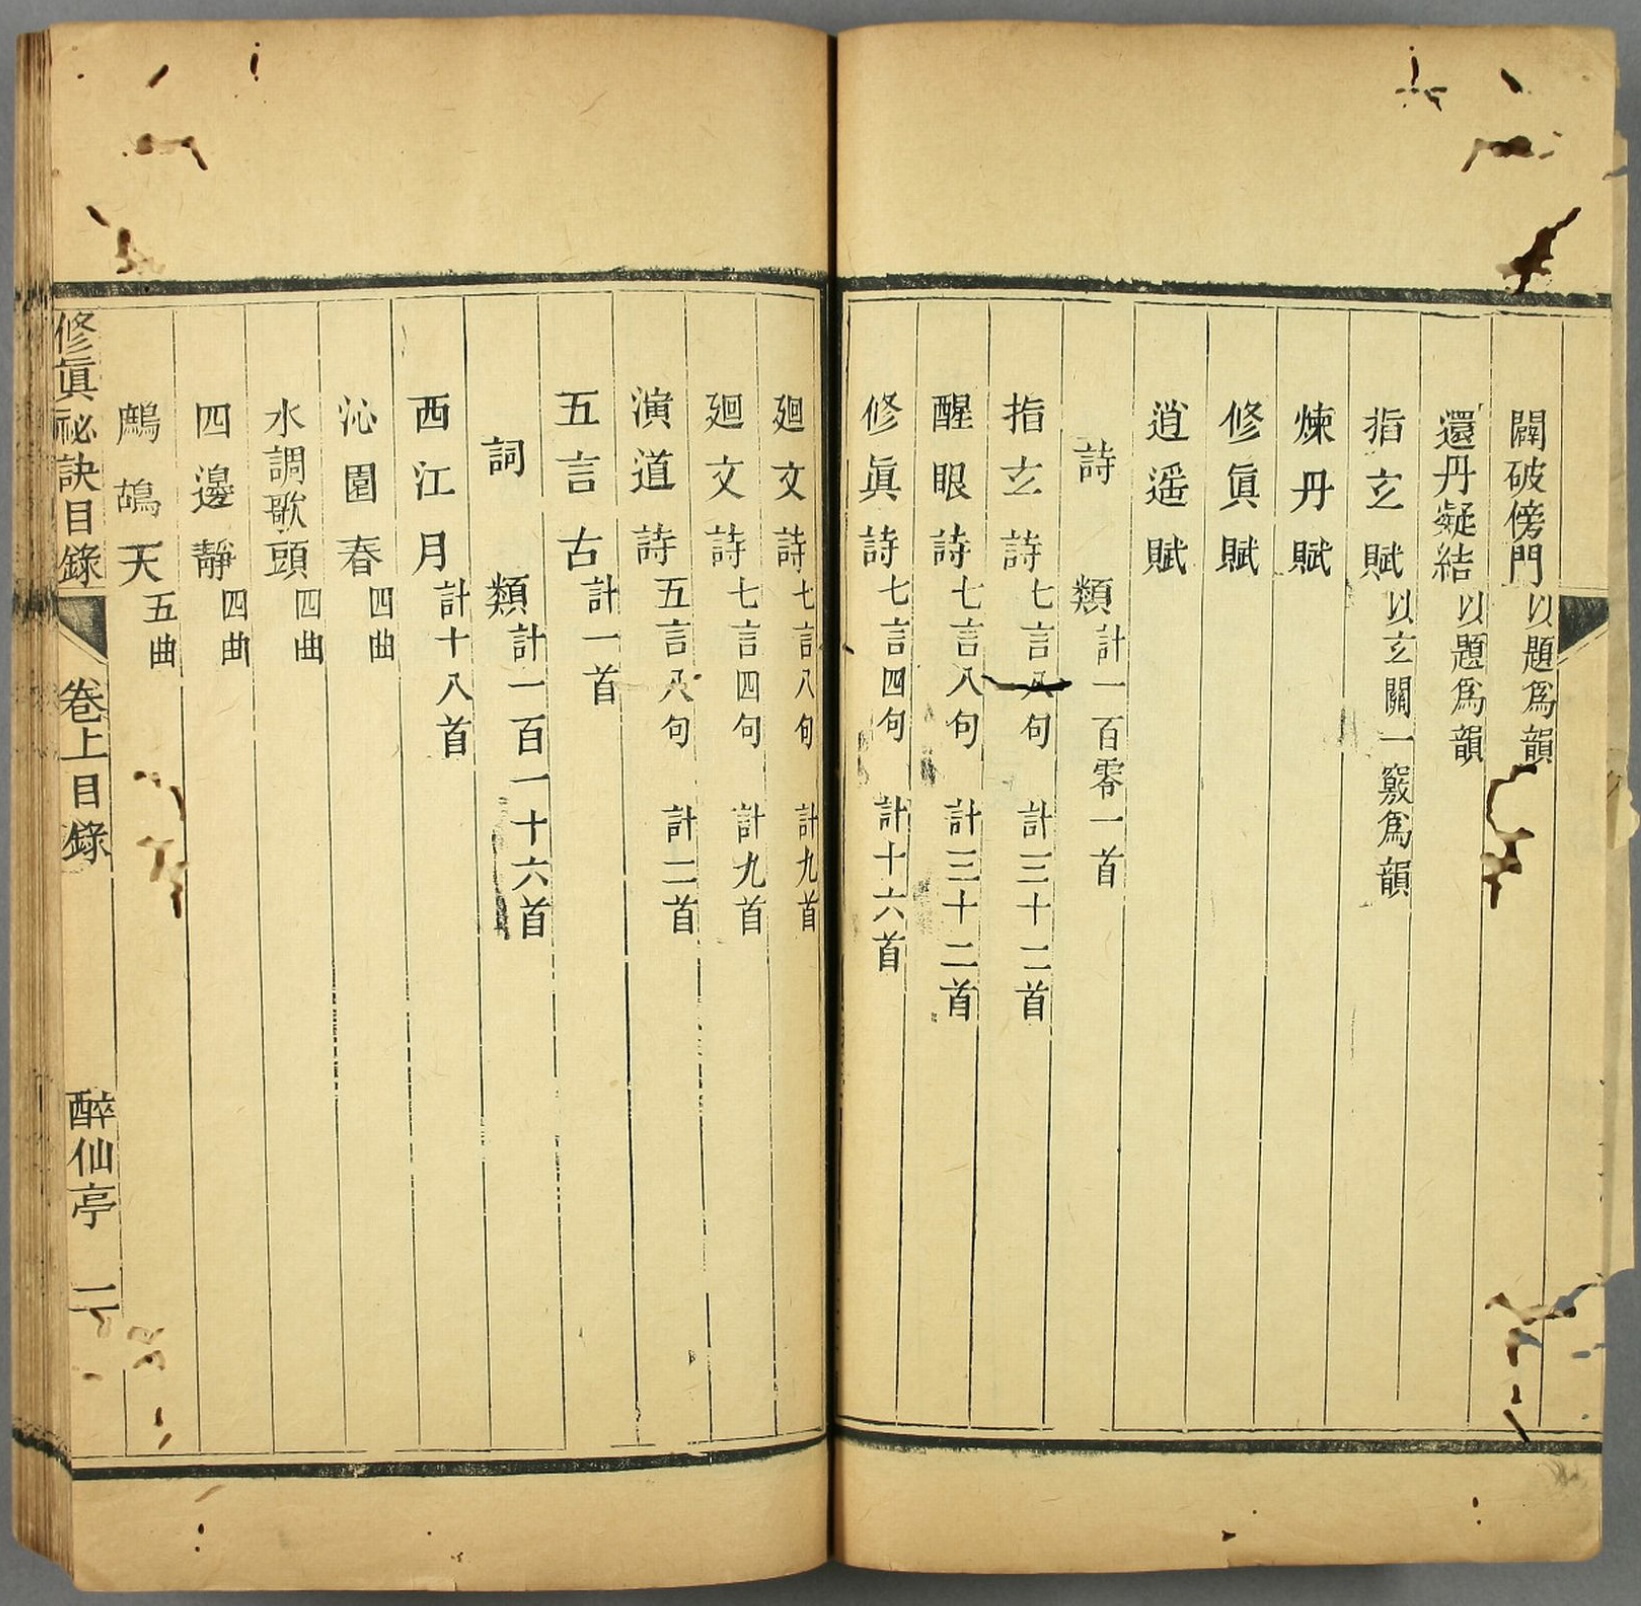 闢破傍門以題爲韻
還丹凝結以題爲韻
指玄賦以玄關一竅爲韻
煉丹賦
修眞賦
逍遥賦
詩類計一百零一首
指玄詩七言八句 計三十二首
醒眼詩七言八句 計三十二首
修眞詩七言四句 計十六首
廻文詩七言八句 計九首
廻文詩七言四句 計九首
演道詩五言八句 計二首
五言古計一首
詞類計一百一十六首
西江月計十八首
沁園春四曲
水調歌頭四曲
四邊靜四曲
鷓鴣天五曲
修眞祕訣目錄 卷上目錄 醉仙亭 二